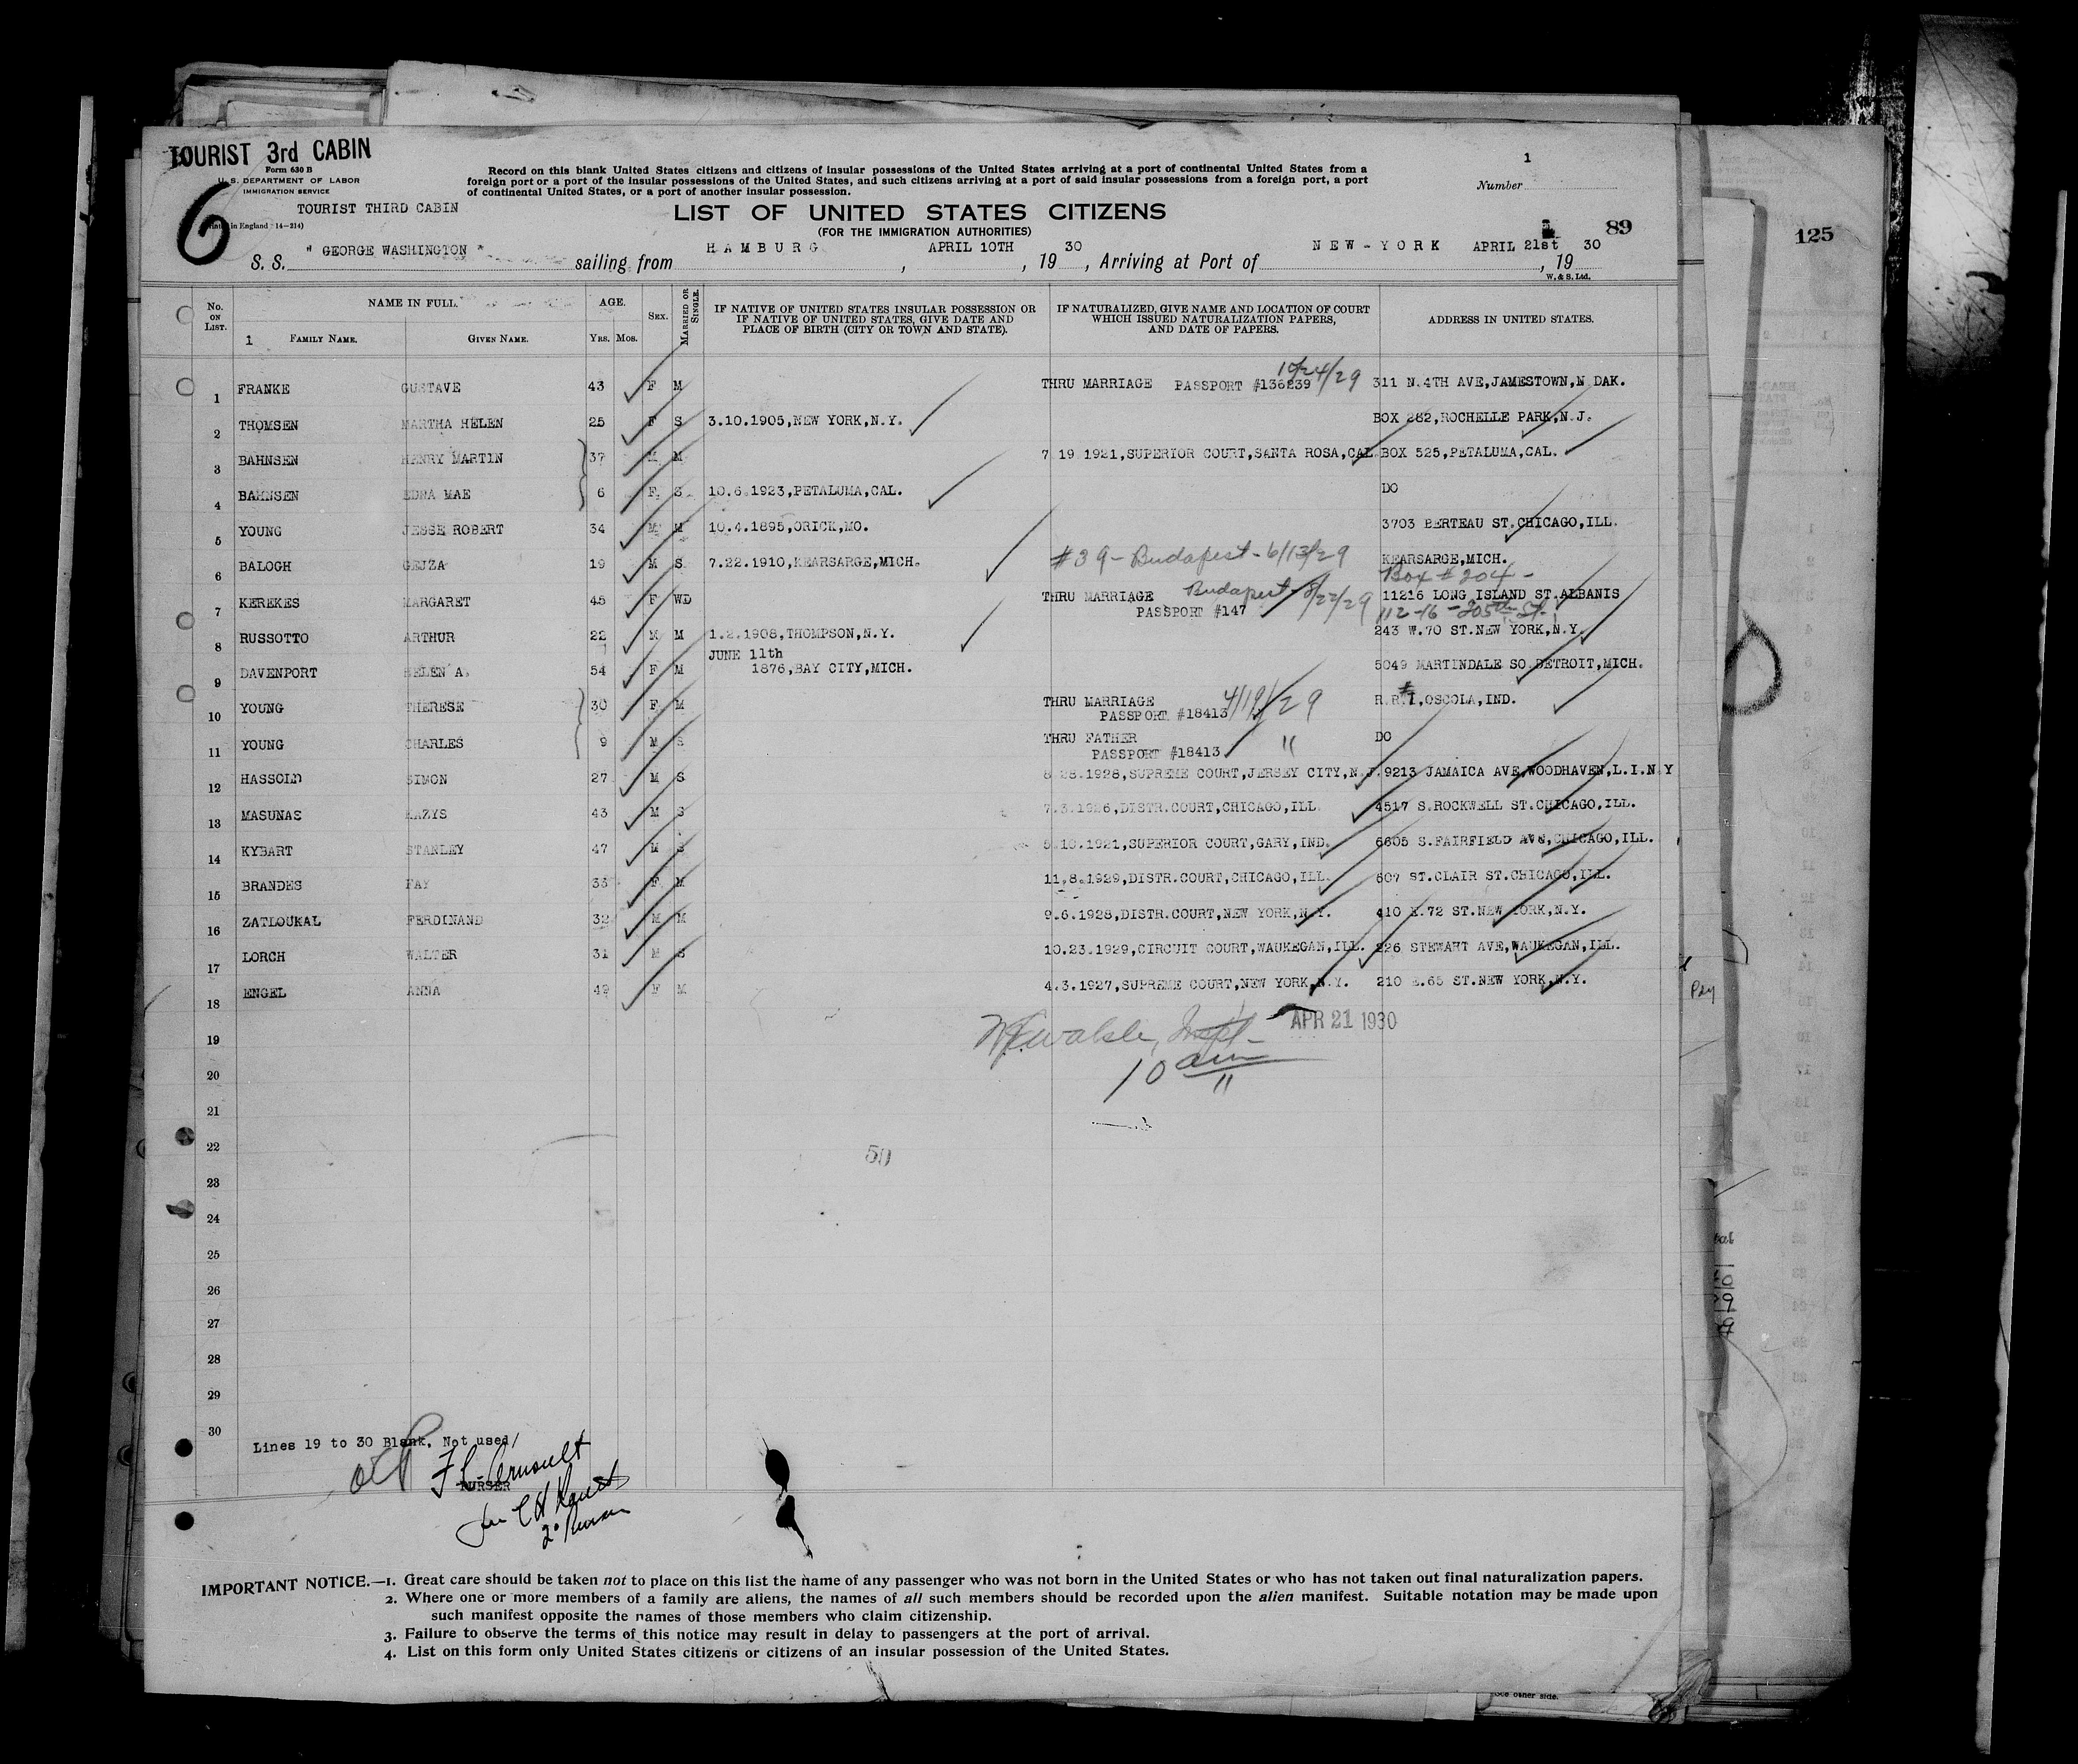 TOURIST 3rd CABIN
Form 630 B
U. S. DEPARTMENT OF LABOR
IMMIGRATION SERVICE
6
TOURIST THIRD CABIN
in England 14—214)
Record on this blank United States citizens and citizens of insular possessions of the United States arriving at a port of continental United States from a
foreign port or a port of the insular possessions of the United States, and such citizens arriving at a port of said insular possessions from a foreign port, a port
of continental United States, or a port of another insular possession.
1
Number
LIST OF UNITED STATES CITIZENS
(FOR THE IMMIGRATION AUTHORITIES)
89
125
S. S. " GEORGE WASHINGTON " sailing from HAMBURG, APRIL 10TH, 19 30, Arriving at Port of NEW-YORK APRIL 21st, 19 30
W. & S. Ltd.
No. ON LIST. NAME IN FULL. AGE. SEX. MARRIED OR SINGLE. IF NATIVE OF UNITED STATES INSULAR POSSESSION OR IF NATIVE OF UNITED STATES, GIVE DATE AND PLACE OF BIRTH (CITY OR TOWN AND STATE). IF NATURALIZED, GIVE NAME AND LOCATION OF COURT WHICH ISSUED NATURALIZATION PAPERS, AND DATE OF PAPERS. ADDRESS IN UNITED STATES.
1 FAMILY NAME. GIVEN NAME. YRS. MOS.
10/24/29
1 FRANKE GUSTAVE 43 F M THRU MARRIAGE PASSPORT #136239 311 N.4TH AVE,JAMESTOWN,N DAK.
2 THOMSEN MARTHA HELEN 25 F S 3.10.1905,NEW YORK,N.Y. BOX 282,ROCHELLE PARK,N.J.
3 BAHNSEN HENRY MARTIN 37 M M 7 19 1921,SUPERIOR COURT,SANTA ROSA,CAL. BOX 525,PETALUMA,CAL.
4 BAHNSEN EDNA MAE 6 F S 10.6.1923,PETALUMA,CAL. DO
5 YOUNG JESSE ROBERT 34 M M 10.4.1895,ORICK,MO. 3703 BERTEAU ST.CHICAGO,ILL.
6 BALOGH GEJZA 19 M S 7.22.1910,KEARSARGE,MICH. #39 - Budapest - 6/13/29 KEARSARGE,MICH.
Box #204 -
7 KEREKES MARGARET 45 F WD THRU MARRIAGE Budapest 11216 LONG ISLAND ST.ALBANIS
PASSPORT #147 /22/29 112-16-205th St.
8 RUSSOTTO ARTHUR 22 M M 1.2.1908,THOMPSON,N.Y. 243 W.70 ST.NEW YORK,N.Y.
JUNE 11th
9 DAVENPORT HELEN A. 54 F M 1876,BAY CITY,MICH. 5049 MARTINDALE SO.DETROIT,MICH.
10 YOUNG THERESE 30 F M THRU MARRIAGE R.R.#1,OSCOLA,IND.
PASSPORT #18413 4/19/29
11 YOUNG CHARLES 9 M S THRU FATHER DO
PASSPORT #18413 "
12 HASSOLD SIMON 27 M S 8 28.1928,SUPREME COURT,JERSEY CITY,N.J. 9213 JAMAICA AVE,WOODHAVEN,L.I.N.Y
13 MASUNAS KAZYS 43 M S 7.3.1926,DISTR.COURT,CHICAGO,ILL 4517 S.ROCKWELL ST.CHICAGO,ILL.
14 KYBART STANLEY 47 M S 5.10.1921,SUPERIOR COURT,GARY,IND. 6605 S.FAIRFIELD AVE,CHICAGO,ILL.
15 BRANDES FAY 33 F M 11.8.1929,DISTR.COURT,CHICAGO,ILL. 607 ST.CLAIR ST.CHICAGO,ILL.
16 ZATLOUKAL FERDINAND 32 M M 9.6.1928,DISTR.COURT,NEW YORK,N.Y. 410 E.72 ST.NEW YORK,N.Y.
17 LORCH WALTER 31 M S 10.23.1929,CIRCUIT COURT,WAUKEGAN,ILL. 226 STEWART AVE,WAUKEGAN,ILL.
18 ENGEL ANNA 49 F M 4.3.1927,SUPREME COURT,NEW YORK,N.Y. 210 E.65 ST.NEW YORK,N.Y.
19
APR 21 1930
20
10 am
21
22
50
23
24
25
26
27
28
29
30
Lines 19 to 30 Blank. Not used,
PURSER
IMPORTANT NOTICE.—1. Great care should be taken not to place on this list the name of any passenger who was not born in the United States or who has not taken out final naturalization papers.
2. Where one or more members of a family are aliens, the names of all such members should be recorded upon the alien manifest. Suitable notation may be made upon
such manifest opposite the names of those members who claim citizenship.
3. Failure to observe the terms of this notice may result in delay to passengers at the port of arrival.
4. List on this form only United States citizens or citizens of an insular possession of the United States.